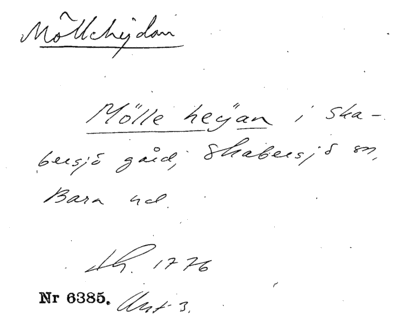 Möllehejdan
Mölle heÿan i Ska-
bersjö gård, Skabersjö sn,
Bara hd.
Lh. 1776
Nr 6385. Akt 3.